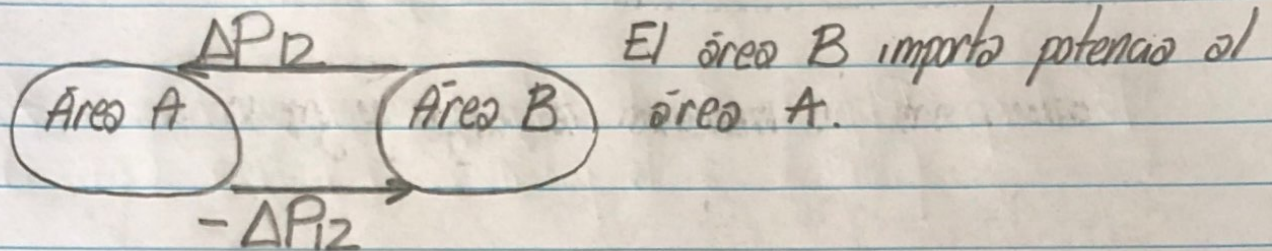 ΔP12
Área A
Área B
-ΔP12
El área B importa potencia al
área A.